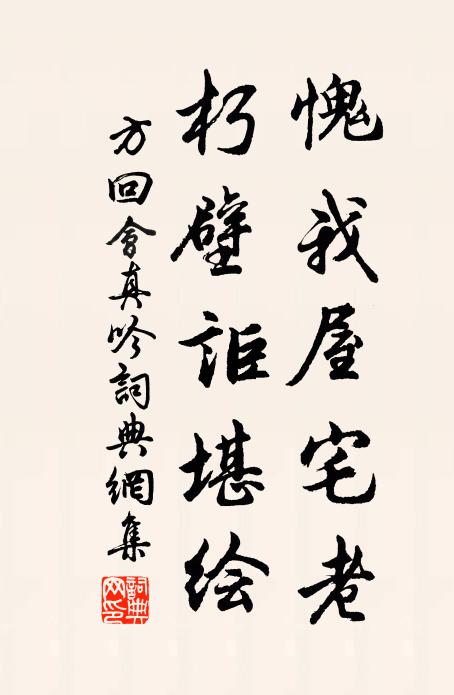 愧我屋宅老
朽壁詎堪绘
方回會真吟詞典網集
詞典網印